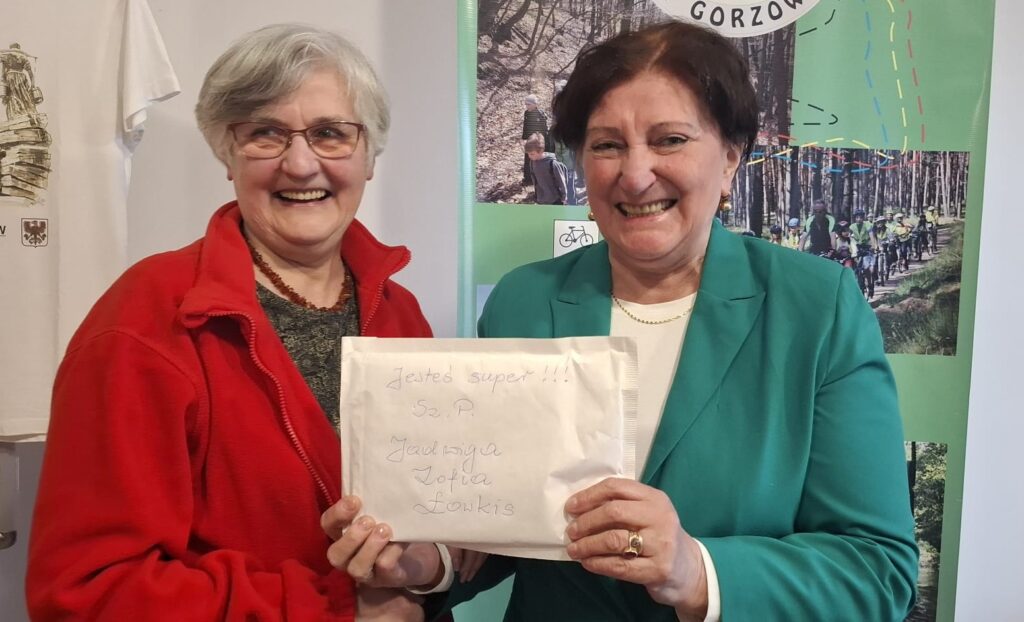 GORZÓW
W
Jesteś super !!!
Sz. P.
Jadwiga
Zofia
Ławkis